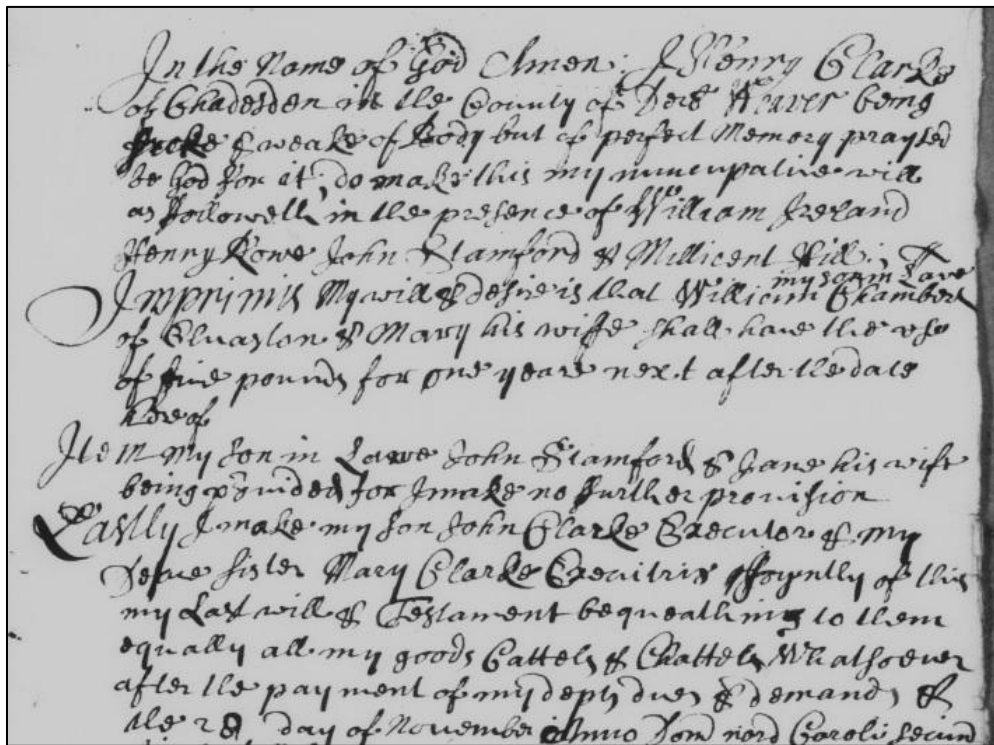 In the Name of God Amen. I Henry Clarke
of Chadesden in the County of Derb Weaver being
sicke & weake of Body but of perfect Memory praysed
be God for it, do make this my nuncupative will
as followeth in the presence of William Ireland
Henry Rowe John Stamford & Millicent Hill.
my son in Lawe
Imprimis My will & desire is that William Chambers
of Elvaston & Mary his wiffe shall have the use
of five pounds for one yeare next after the date
hereof
Item my son in Lawe John Stamford & Jane his wife
being pvided for I make no further provision
Lastly I make my son John Clarke Executor & my
Deare sister Mary Clarke Executrix Joyntly of this
my Last will & Testament bequeathing to them
equally all my goods Cattels & Chattels Whatsoever
after the payment of my depts dues & demands
the 28 day of November Anno Dom Caroli secund